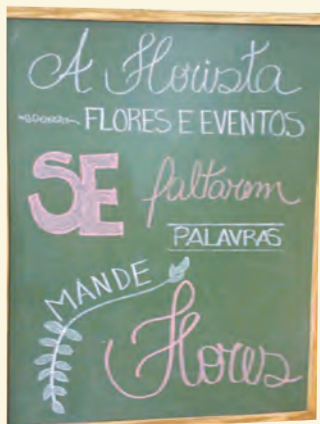 A Florista
FLORES E EVENTOS
SE faltarem
PALAVRAS
MANDE
Flores